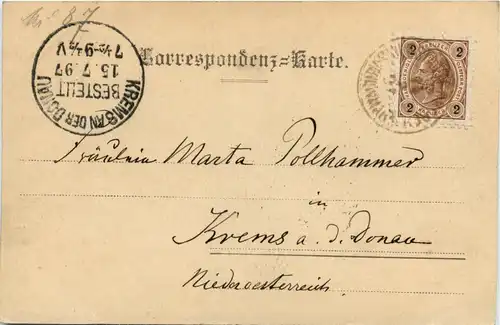 Correspondenz-Karte.
KREMS AN DER DONAU
BESTELLT
15.7.97
2
2
2
2
Fräulein Marta Pollhammer
in
Krems a. d. Donau
Niederoesterreich